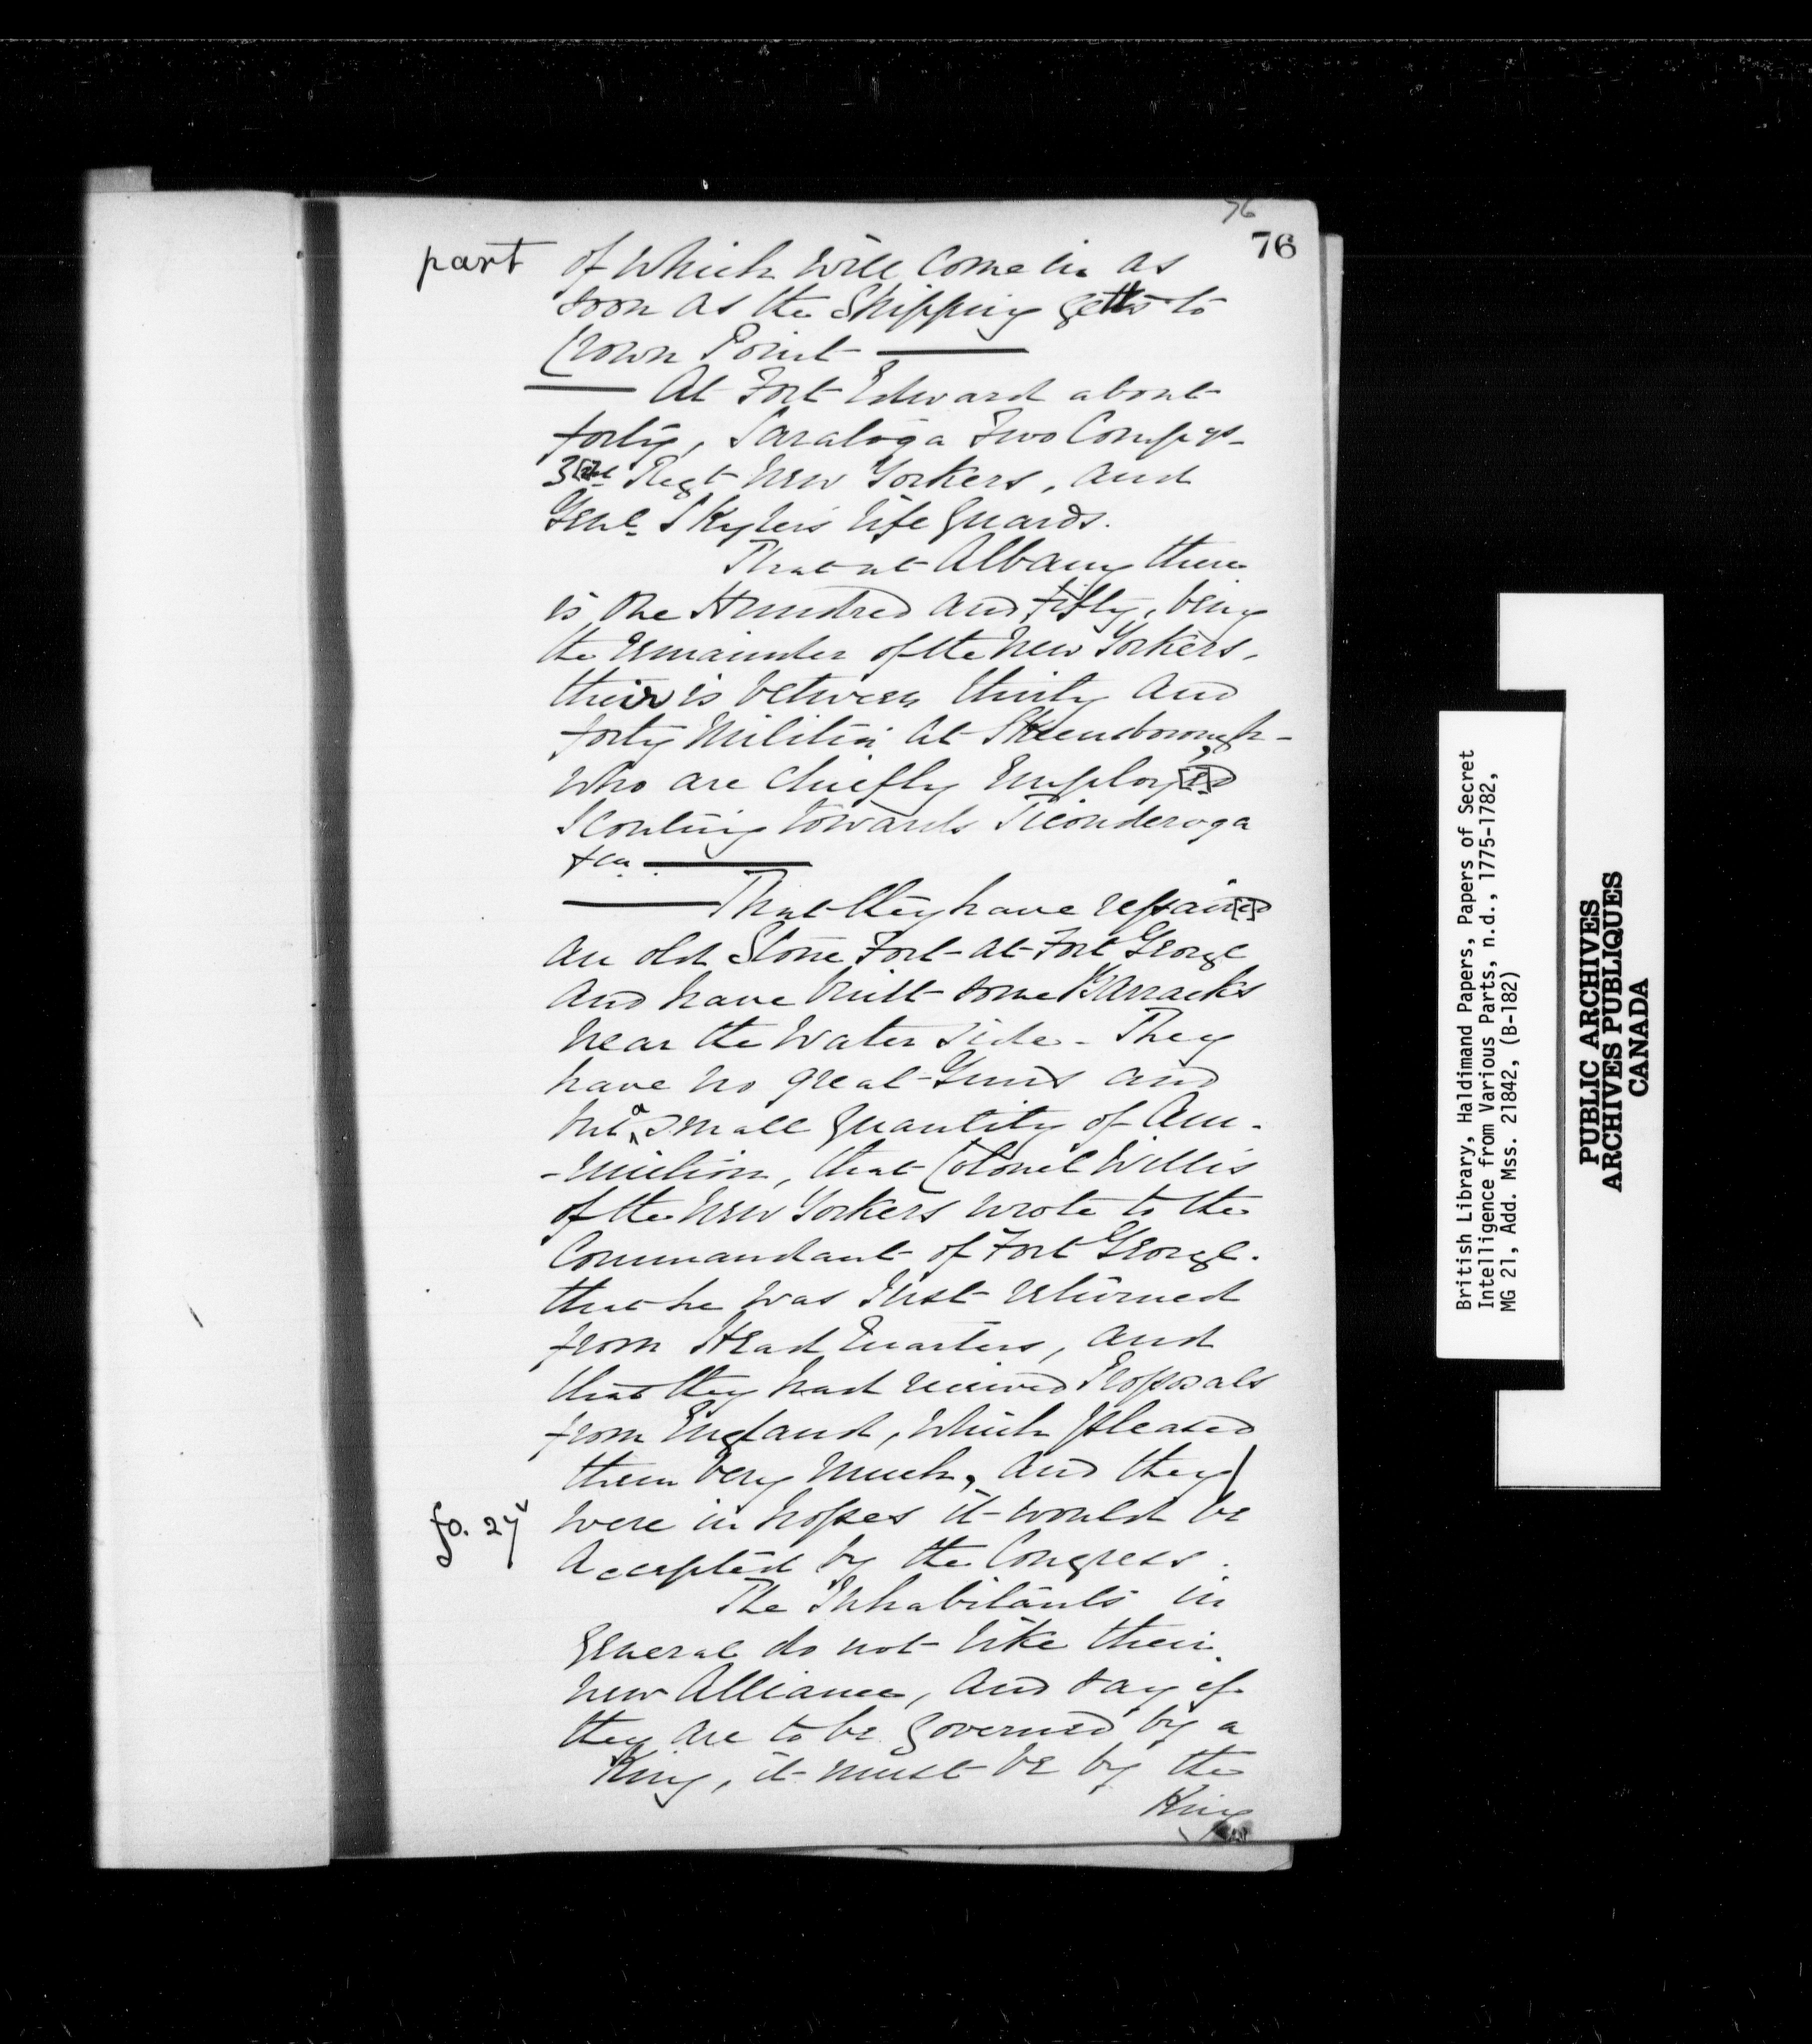 76
76
part of which will Come in as
soon as the Shipping getts to
Crown Point
At Fort Edward about
forty, Saratoga Two Compys
3[rd] Regt New Yorkers, and
Genl Skyler's life guards.
That at Albany there
is One Hundred and fifty, being
the remainder of the New Yorkers,
their is between thirty and
forty Militia at Skeensborough-
who are chiefly Employ[e]d
Scouting towards Ticonderoga
&ca.
That they have repair[e]d
an old Stone Fort at Fort George
and have built some Barracks
near the Water Side - They
have no great Guns and
but a small quantity of Am-
-unition, that Colonel Willis
of the New Yorkers wrote to the
Commandant of Fort George.
that he was Just returned
from Head Quarters, and
that they had received Proposals
from England, which pleased
them very much, and they
fo. 27v
were in hopes it would be
Accepted by the Congress.
The Inhabitants in
general do not like their
new Alliance, and say if
they are to be governed by a
King, it must be by the
King
British Library, Haldimand Papers, Papers of Secret
Intelligence from Various Parts, n.d., 1775-1782,
MG 21, Add. Mss. 21842, (B-182)
PUBLIC ARCHIVES
ARCHIVES PUBLIQUES
CANADA